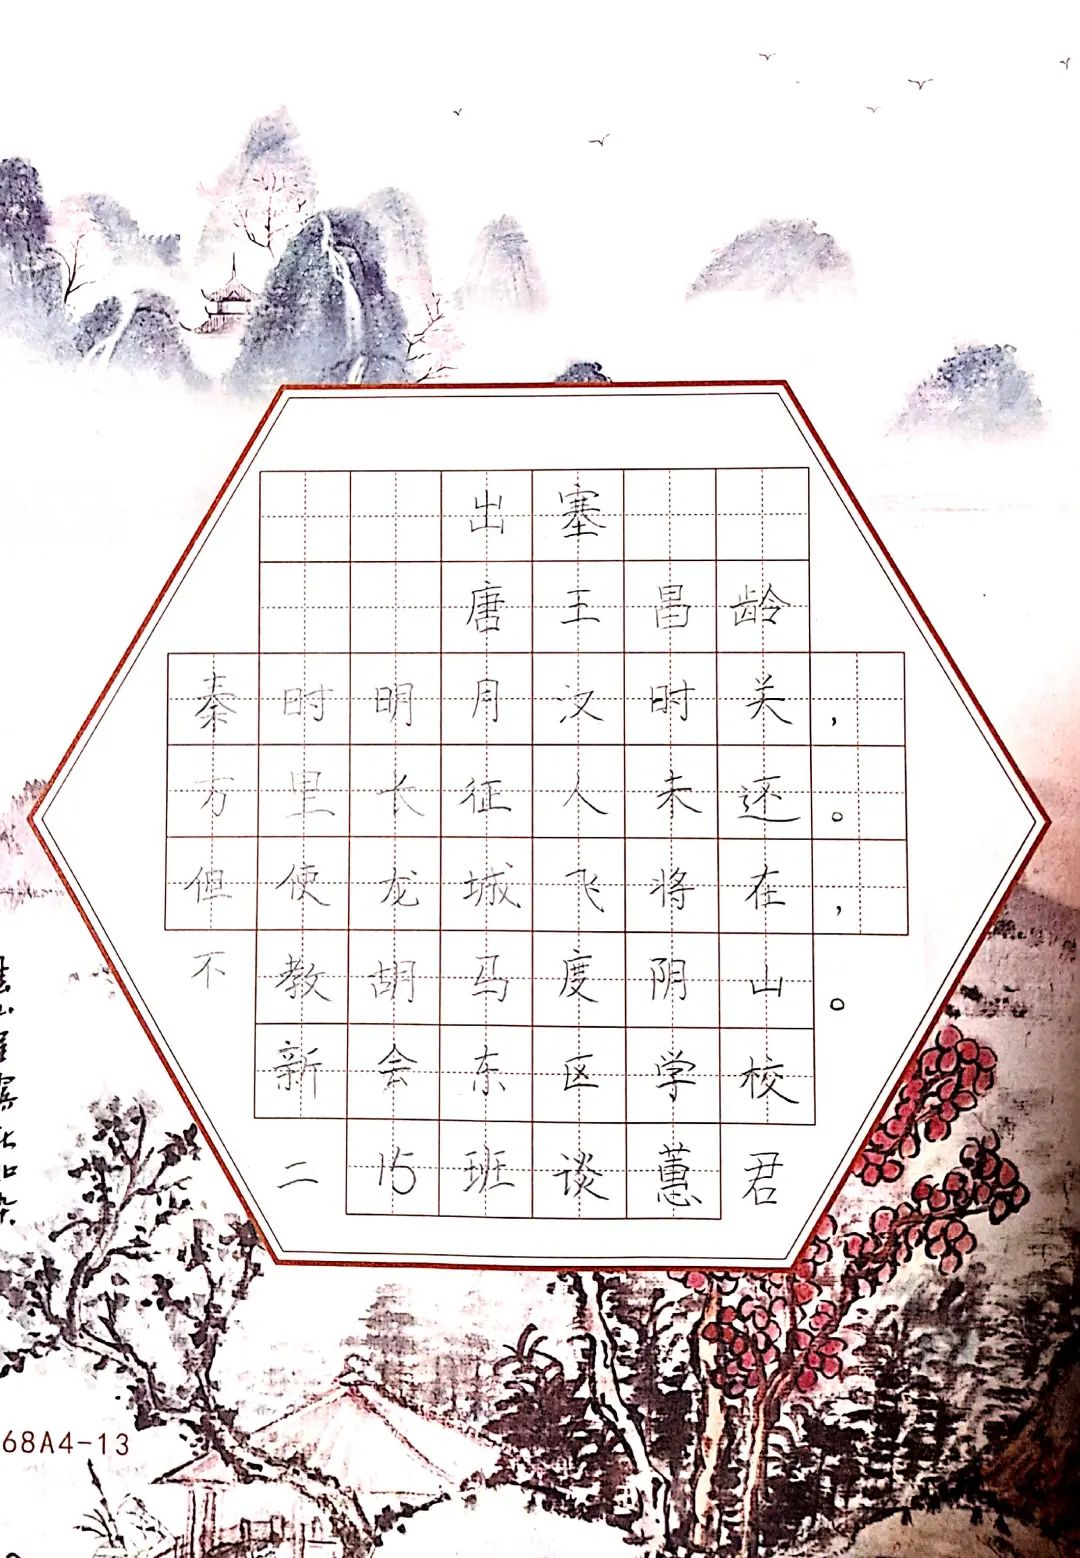 出塞
唐王昌龄
秦时明月汉时关，
万里长征人未还。
但使龙城飞将在，
不教胡马度阴山。
新会东区学校
二15班谈蕙君
68A4-13